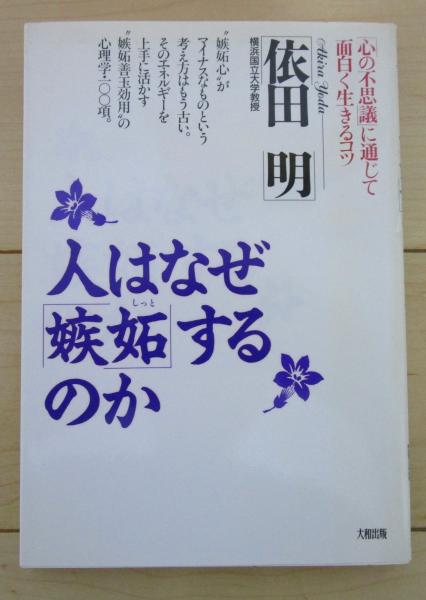 「心の不思議」に通じて
面白く生きるコツ
Akira Yoda
依田 明
横浜国立大学教授
〝嫉妬心〟が
マイナスなものという
考え方はもう古い。
そのエネルギーを
上手に活かす
〝嫉妬善玉効用〟の
心理学一〇〇項。
人はなぜ
「嫉妬」する
しっと
のか
大和出版